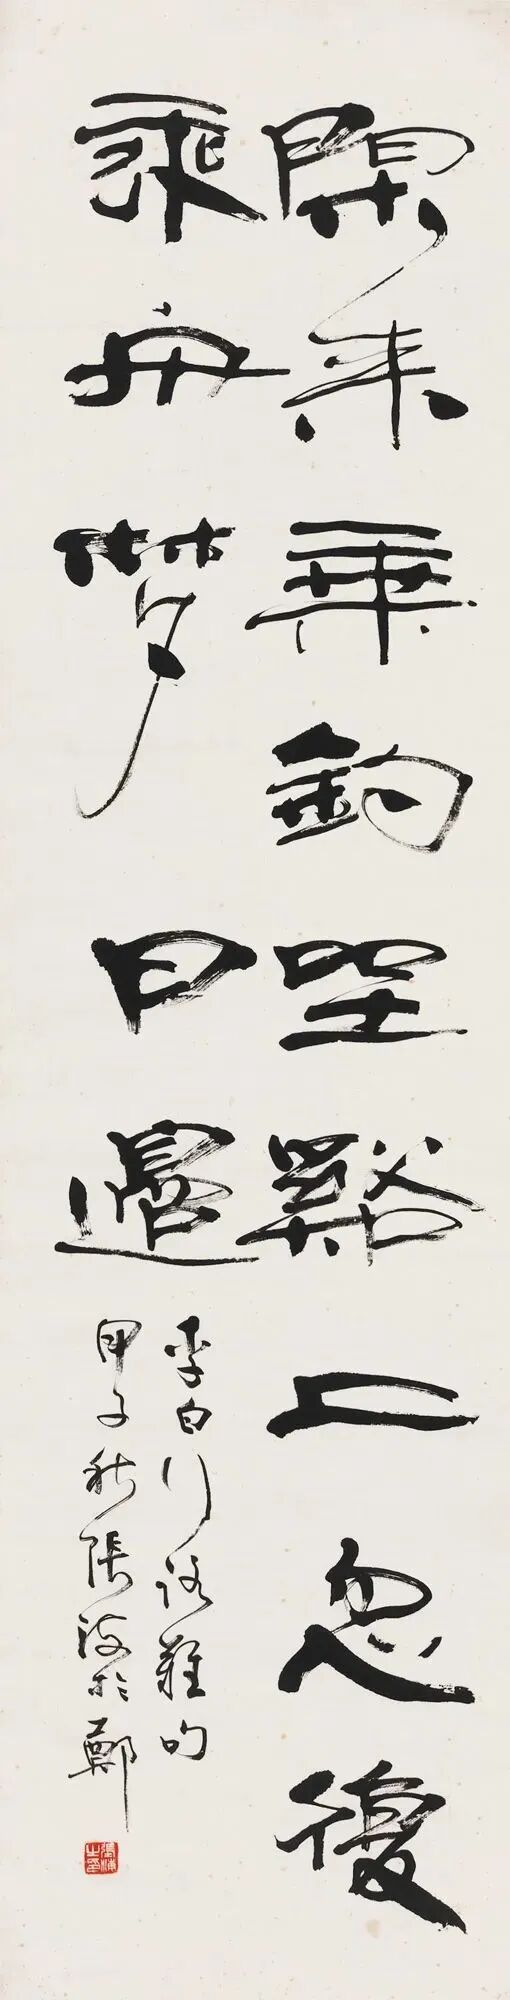 閑來垂釣坐谿上忽復
乘舟夢日邊
李白行路難句
甲子秋張海於鄭
張海之印